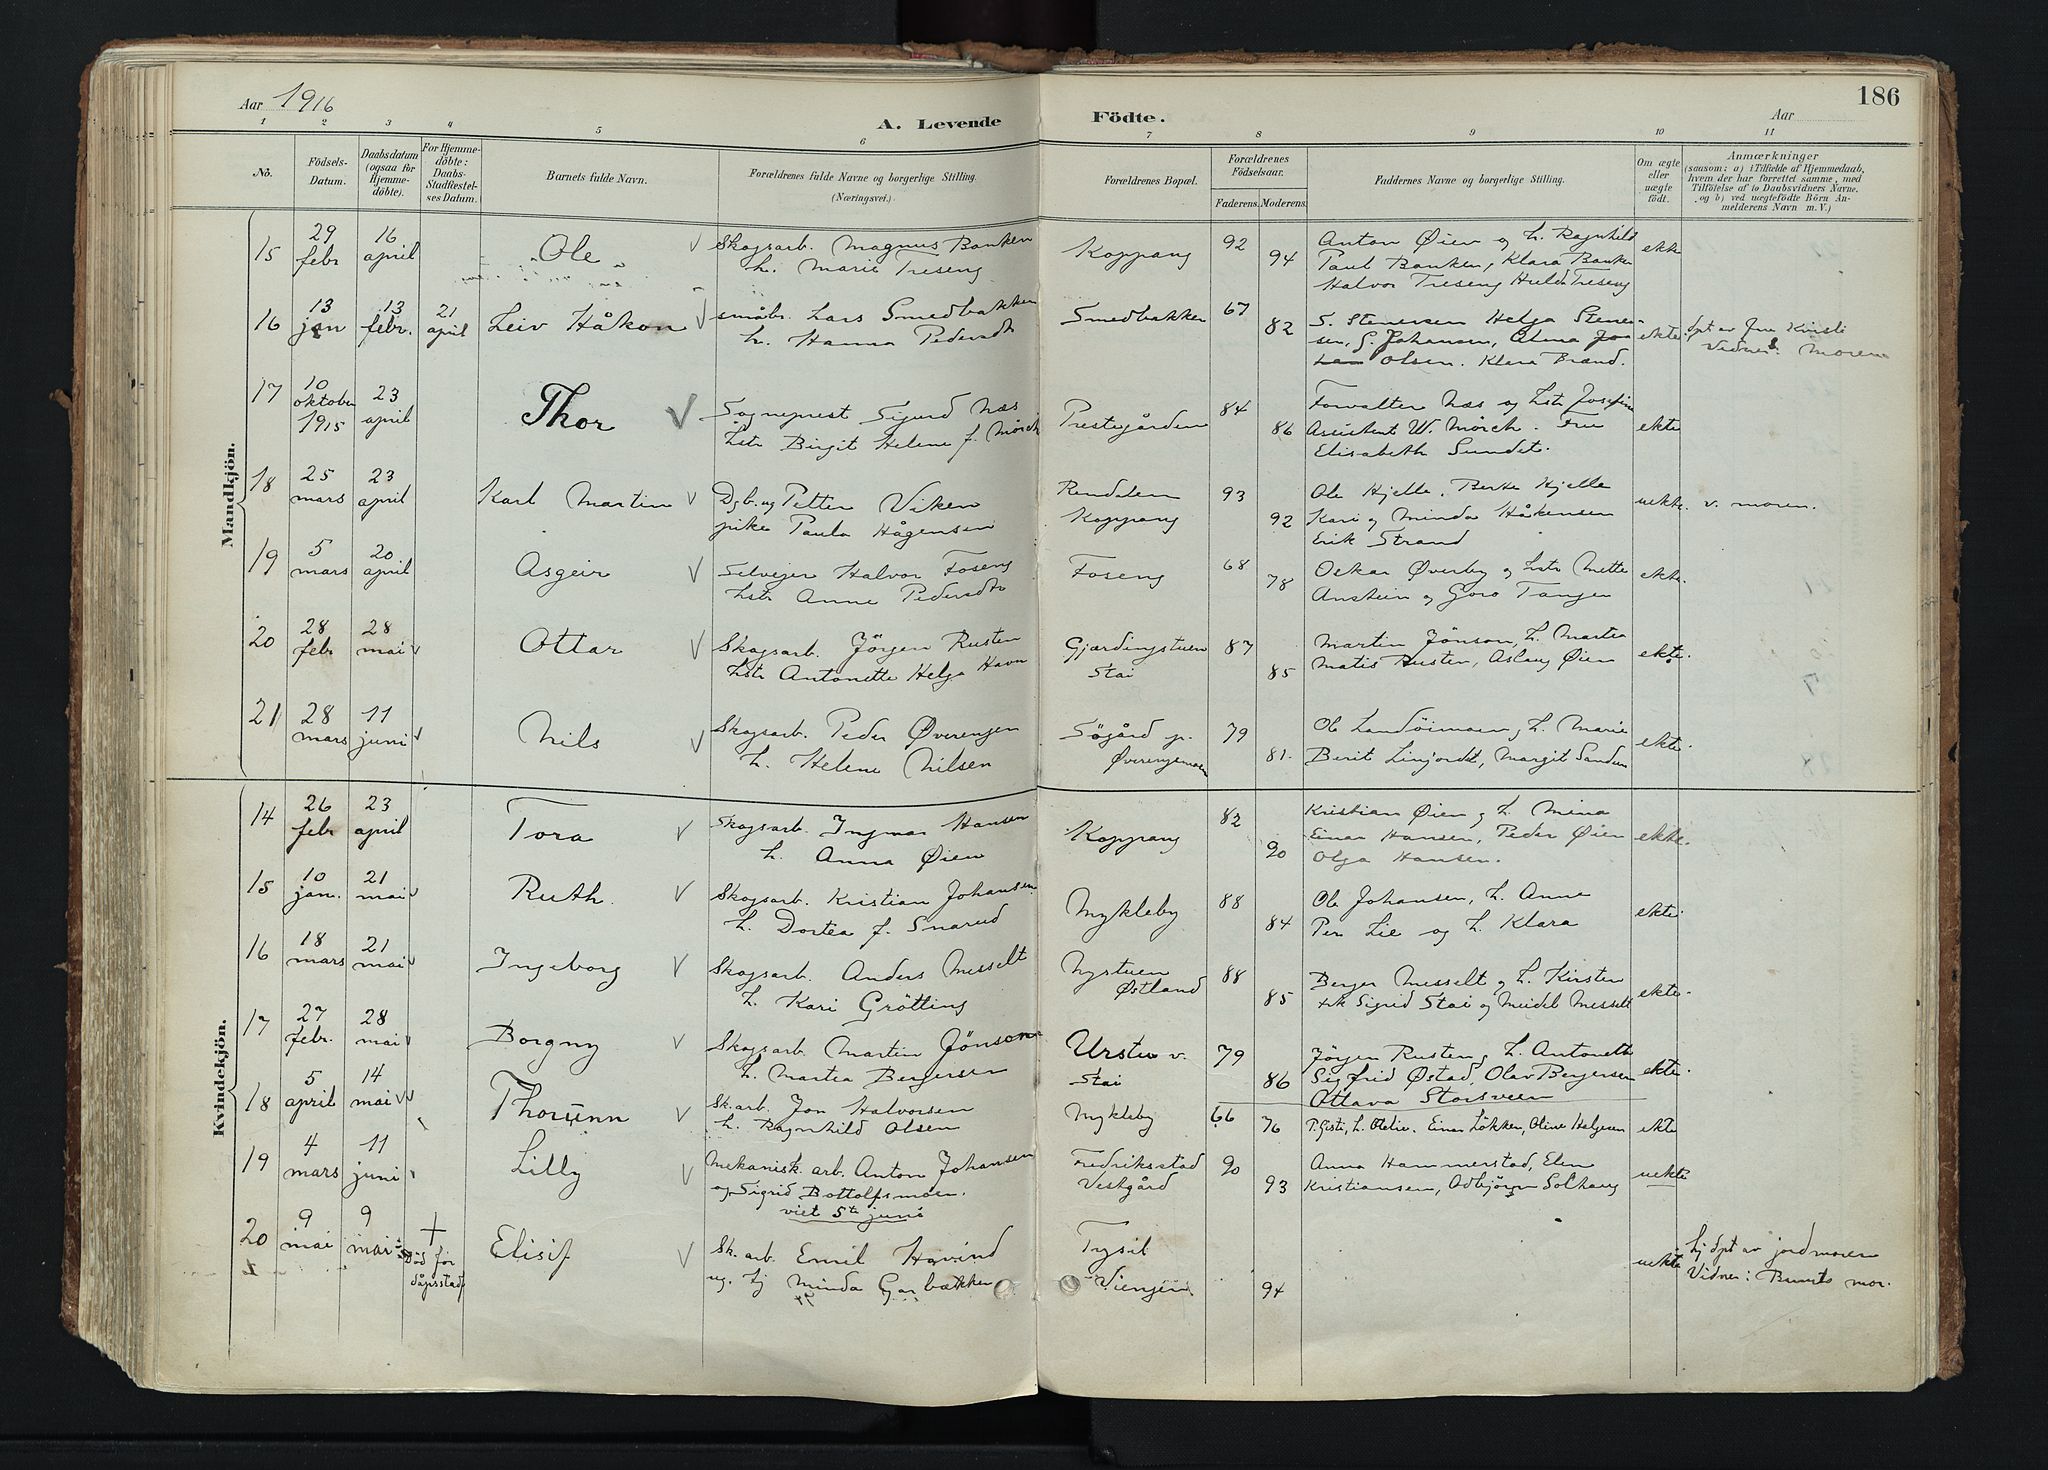 Aar 1916
A. Levende Födte.
Aar
186
1 2 3 4 5 6 7 8 9 10 11
No.
Födsels-
Datum.
Daabsdatum
(ogsaa for
Hjemme-
döbte).
For Hjemme-
döbte:
Daabs-
Stadfæstel-
ses Datum.
Barnets fulde Navn.
Forældrenes fulde Navne og borgerlige Stilling.
(Næringsvei.)
Forældrenes Bopæl.
Forældrenes
Födselsaar.
Faderens.
Moderens.
Faddernes Navne og borgerlige Stilling.
Om ægte
eller
uægte
födt.
Anmærkninger
(saasom: a) i Tilfælde af Hjemmedaab,
hvem der har forrettet samme, med
Tilföielse af to Daabsvidners Navne,
og b) ved uægtefödte Börn An-
melderens Navn m. V.)
Mandkjön.
15 29 febr 16 april Ole
Skogsarb. Magnus Banken
h. Marie Treseng
Koppang 92 94
Anton Øien og h. Ragnhild
Paul Banken, Klara Banken
Halvor Treseng Hulda Treseng
ekte
16 13 jan 13 febr. 21 april Leiv Håkon
småbr. Lars Smedbakken
h. Hanna Pedersdtr
Smedbakken 67 82
S. Stenersen Helga Stener-
sen, G. Johansen, Alma
Olsen. Klara Brænd.
ekte
dpt av fru Kvisle
Vidner: Moren
17 10 oktober 1915 23 april Thor
Sogneprest Sigurd Næs
hstr Birgit Helene f. Mörch
Prestegården 84 86
Forvalter Næs og hstr Josefine
Assistent W. Mörch. Fru
Elisabeth Sundet.
ekte
18 25 mars 23 april Karl Martin
Dgb. ug Petter Viken
pike Paula Hågensen
Rendalen
Koppang 93 92
Ole Hjelle, Berte Hjelle
Kari og Minda Håkensen
Erik Strand
uekte. v. moren.
19 5 mars 20 april Asgeir
Selvejer Halvor Foseng
hstr Anne Pedersdtr
Foseng 68 78
Oskar Øverby og hstr Mette
Anstein og Goro Tangen
ekte.
20 28 febr 28 mai Ottar
Skogsarb. Jörgen Rusten
hstr Antonette Helga Havn
Gjerdingstuen
Stai 87 85
Martin Jönson, h. Martea
Matis Rusten, Aslaug Øien
ekte.
21 28 mars 11 juni Nils
Skogsarb. Peder Øverengen
h. Helene Nilsen
Sögård p.
Øverengemoen 79 81.
Ole Landöimoen, h. Marie
Berit Linjordet, Margit Sanden
ekte.
Kvindekjön.
14 26 febr 23 april Tora
Skogsarb. Ingmar Hansen
h. Anna Øien
Koppang 82 90
Kristian Øien og h. Mina
Einar Hansen, Peder Øien
Olga Hansen.
ekte.
15 10 jan. 21 mai Ruth.
Skogsarb. Kristian Johansen
h. Dortea f. Snarud
Mykleby 88 84
Ole Johansen, h. Anne
Per Lie og h. Klara
ekte.
16 18 mars 21 mai Ingeborg
Skogsarb. Anders Messelt
h. Kari Grötting
Nystuen
Østland 88 85
Berger Messelt og h. Kirsten
Sigrid Stai og Meidel Messelt
ekte.
17 27 febr. 28 mai Borgny
Skogsarb. Martin Jönson
h. Martea Bergersen
Urstu v.
Stai 79 86
Jörgen Rusten, h. Antonette
Sigfrid Østad, Olav Bergersen
Ottava Storsveen
ekte.
18 5 april 14 mai Thorunn
Sk. arb. Jon Halvorsen
h. Ragnhild Olsen
Mykleby 66 76
h. Otelie. Einar Lökken, Oline Helgesen
ekte
19 4 mars 11 juni Lilly
Mekanisk. arb. Anton Johansen
og Sigrid Bottolfsmoen.
viet 5te juni
Fredriksstad
Vestgård 90 93
Anna Hammerstad, Elen
Kristiansen, Odbjörg Solhaug
uekte
20 9 mai 9 mai + Död för dåpsstadf. Elisif
Sk. arb. Emil Havind
ug. tj Minda Garbækken
Trysil
Viengen 94
uekte
hj dpt av jordmoren
Vidner: Barnets mor.